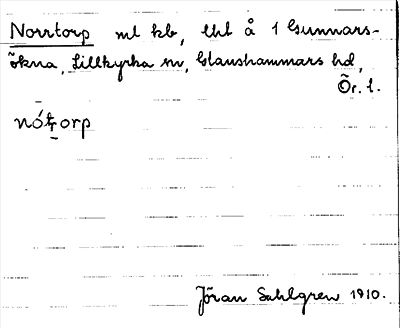 Norrtorp ml kb, lht å 1 Gunnars-
ökna, Lillkyrka sn, Glanshammars hd,
Ör. l.
Jöran Sahlgren 1910.